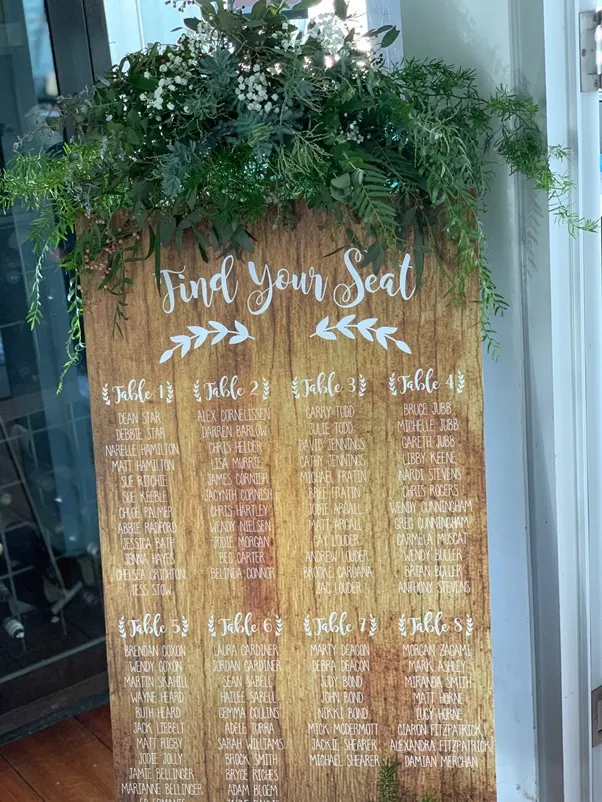 Find Your Seat
Table 1
DEAN STAR
DEBBIE STAR
NARELLE HAMILTON
MATT HAMILTON
SUE RITCHIE
SUE KEEBLE
CHLOE PALMER
ABBIE RADFORD
JESSICA BATH
JENNA HAYES
CHELSEA CRICHTON
TESS STOW
Table 2
ALEX CORNELISSEN
DARREN BARLOW
CHRIS HELDER
LISA MURRIE
JAMES CORNISH
JACYNTH CORNISH
CHRIS HARTLEY
WENDY NIELSEN
JODIE MORGAN
BEC CARTER
BELINDA CONNOR
Table 3
GARRY TODD
JULIE TODD
DAVID JENNINGS
CATHY JENNINGS
MICHAEL FRATIN
BREE FRATIN
JODIE ARGALL
MATT ARGALL
GAY LOUDER
ANDREW LOUDER
BROOKE CARUANA
ZAC LOUDER
Table 4
BRUCE JUBB
MICHELLE JUBB
GARETH JUBB
LIBBY KEENE
NARDI STEVENS
CHRIS ROGERS
WENDY CUNNINGHAM
GREG CUNNINGHAM
CARMELA MUSCAT
WENDY BULLER
BRIAN BULLER
ANTHONY STEVENS
Table 5
BRENDAN COXON
WENDY COXON
MARTIN SKAHILL
WAYNE HEARD
RUTH HEARD
JACK LIEBELT
MATT RIGBY
JODIE JOLLY
JAMIE BELLINGER
MARIANNE BELLINGER
Table 6
LAURA GARDINER
JORDAN GARDINER
SEAN SABELL
HAILEE SABELL
GEMMA COLLINS
ADELE TURRA
SARAH WILLIAMS
BROCK SMITH
BRYCE RICHES
ADAM BLOOM
Table 7
MARTY DEACON
DEBRA DEACON
JUDY BOND
JOHN BOND
NIKKI BOND
MICK MCDERMOTT
JACKIE SHEARER
MICHAEL SHEARER
Table 8
MORGAN ZAGAMI
MARK ASHLEY
MIRANDA SMITH
MATT HORNE
LUCY HORNE
CIARON FITZPATRICK
ALEXANDRA FITZPATRICK
DAMIAN MERCHAN